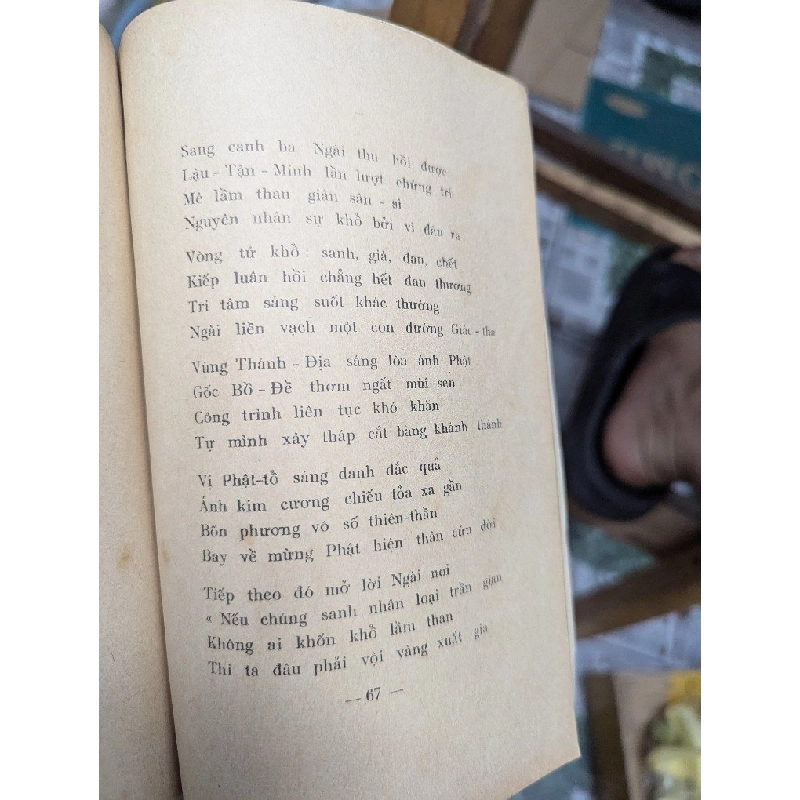 Sang canh ba Ngài thu hồi được
Lậu - Tận - Minh lần lượt chứng tri
Mê lầm than giận sân - si
Nguyên nhân sự khổ bởi vì đâu ra
Vòng tứ khổ : sanh, già, đau, chết
Kiếp luân hồi chẳng hết đau thương
Trí tâm sáng suốt khác thường
Ngài liền vạch một con đường Giác - tha
Vùng Thánh - Địa sáng lòa ánh Phật
Gốc Bồ - Đề thơm ngất mùi sen
Công trình liên tục khó khăn
Tự mình xây tháp cắt bang khánh thành
Vị Phật-tổ sáng danh đắc quả
Ánh kim cương chiếu tỏa xa gần
Bốn phương vô số thiên-thần
Bay về mừng Phật hiện thân cứu đời
Tiếp theo đó mở lời Ngài nói
« Nếu chúng sanh nhân loại trần gian
Không ai khốn khổ lầm than
Thì ta đâu phải vội vàng xuất gia
— 67 —